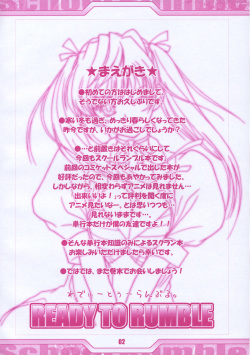 ★まえがき★
●初めての方ははじめまして、
そうでない方お久しぶりです。
●寒い冬も過ぎ、めっきり暮らしくなってきた
昨今ですが、いかがお過ごしでしょうか？
●…と前置きはそれぐらいにして
今回もスクールランブル本です。
前回のコミケットスペシャルで出した本が
好評だったので、今回もあやかってみました。
しかしながら、相変わらずアニメは見れません…
出来いいよ！って評判を聞く度に
アニメ見たいなー、とは思うっても
見れないままです…
単行本だけが僕の友達ですよ！
●そんな単行本知識のみによるスクラン本
お楽しみいただけましたら幸いです。
●ではでは、また巻末でお会いしましょう！
れでぃーとぅーらんぶる。
READY TO RUMBLE
02